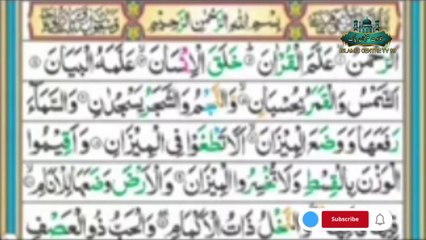 بِسْمِ اللهِ الرَّحْمٰنِ الرَّحِيْمِ
اَلرَّحْمٰنُ عَلَّمَ الْقُرْاٰنَ خَلَقَ الْاِنْسَانَ عَلَّمَهُ الْبَيَانَ
اَلشَّمْسُ وَالْقَمَرُ بِحُسْبَانٍ وَّالنَّجْمُ وَالشَّجَرُ يَسْجُدٰنِ وَالسَّمَآءَ
رَفَعَهَا وَوَضَعَ الْمِيْزَانَ اَلَّا تَطْغَوْا فِي الْمِيْزَانِ وَاَقِيْمُوا
الْوَزْنَ بِالْقِسْطِ وَلَا تُخْسِرُوا الْمِيْزَانَ وَالْاَرْضَ وَضَعَهَا لِلْاَنَامِ
فِيْهَا وَّالنَّخْلُ ذَاتُ الْاَكْمَامِ وَالْحَبُّ ذُو الْعَصْفِ
Subscribe